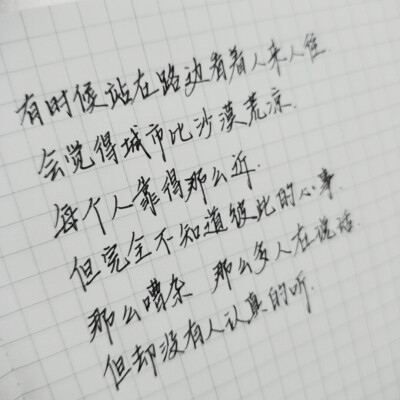 有时候站在路边看着人来人往.
会觉得城市比沙漠荒凉.
每个人靠得那么近.
但完全不知道彼此的心事.
那么嘈杂 那么多人在说话
但却没有人认真的听.